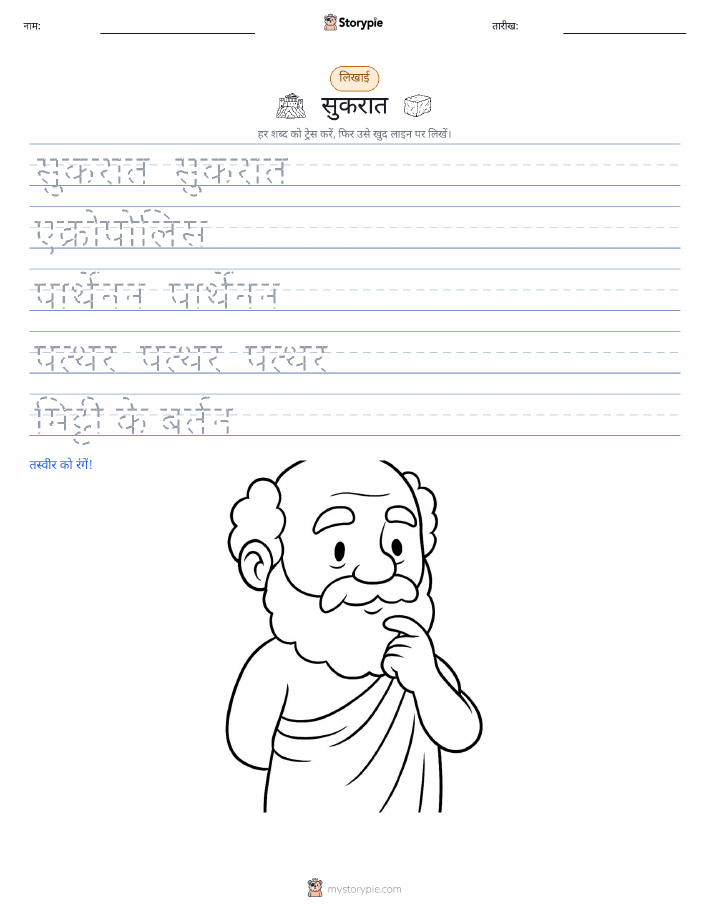 नाम:
Storypie
तारीख:
लिखाई
सुकरात
हर शब्द को ट्रेस करें, फिर उसे खुद लाइन पर लिखें।
सुकरात सुकरात
एक्रोपोलिस
पार्थेनन पार्थेनन
पत्थर पत्थर पत्थर
मिट्टी के बर्तन
तस्वीर को रंगें!
mystorypie.com